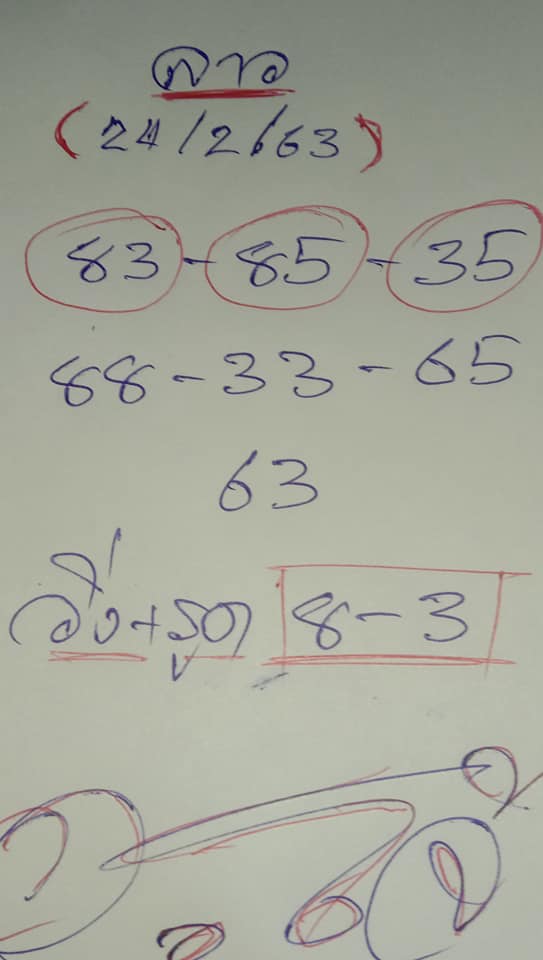 ลาว
(24/2/63)
83-85-35
88-33-65
63
วิ่ง+รูด 8-3